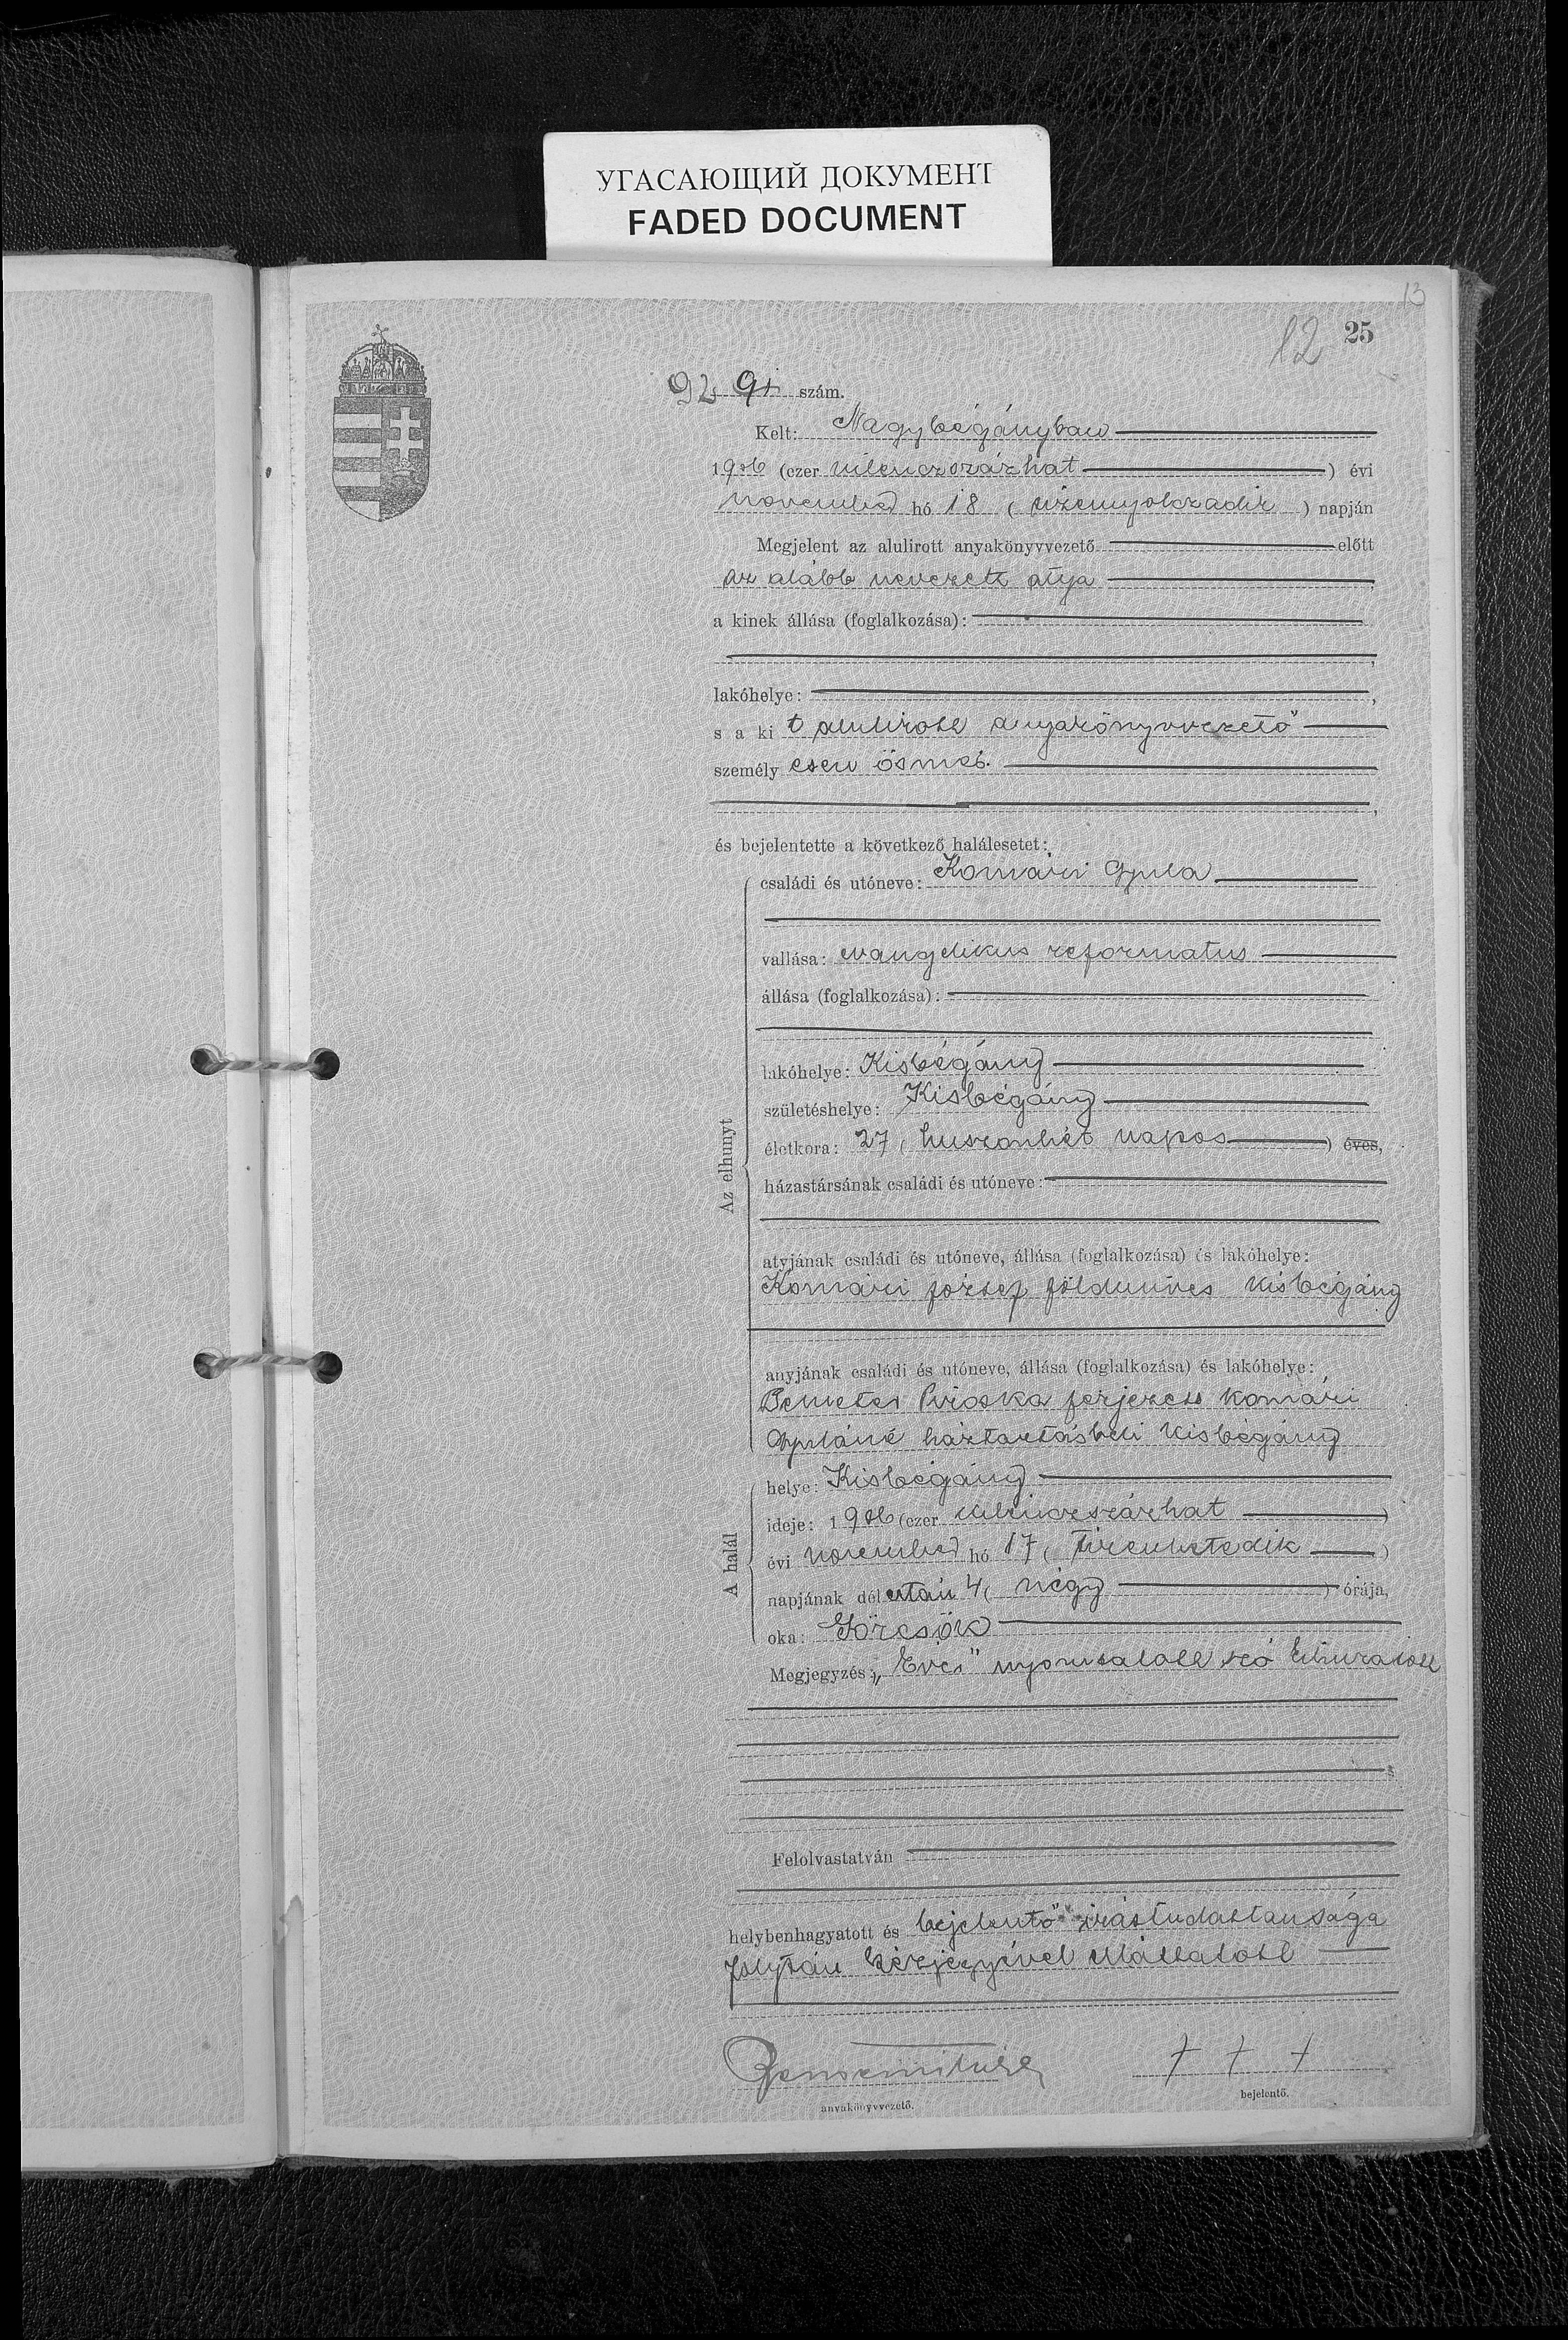 УГАСАЮЩИЙ ДОКУМЕНТ
FADED DOCUMENT
13
12 25
92 91 szám.
Kelt: Nagybégányban
1906 (ezer kilenczszázhat) évi
november hó 18 (tizennyolczadik) napján
Megjelent az alulirott anyakönyvvezető előtt
az alább nevezett atya,
a kinek állása (foglalkozása):
,
lakóhelye: ,
s a ki t alulirott anyakönyvvezető
személy esen ösmer.
,
és bejelentette a következő halálesetet:
Az elhunyt
családi és utóneve: Komári Gyula
vallása: evangelikus reformatus
állása (foglalkozása):
lakóhelye: Kisbégány
születéshelye: Kisbégány
életkora: 27 (huszonhét napos) éves,
házastársának családi és utóneve:
atyjának családi és utóneve, állása (foglalkozása) és lakóhelye:
Komári József földmives Kisbégány
anyjának családi és utóneve, állása (foglalkozása) és lakóhelye:
Demeter Piroska ferjezett Komári
Gyuláné háztartásbeli Kisbégány
A halál
helye: Kisbégány
ideje: 1906 (ezer kilenczszázhat)
évi november hó 17 (tizenhetedik)
napjának dél után 4 (négy) órája,
oka: Görcsök
Megjegyzés: „Éves" nyomtatott szó kihuzatott
Felolvastatván
helybenhagyatott és bejelentő irástudatlansága
folytán kézjegyével elláttatott
† † †
anyakönyvvezető.
bejelentő.